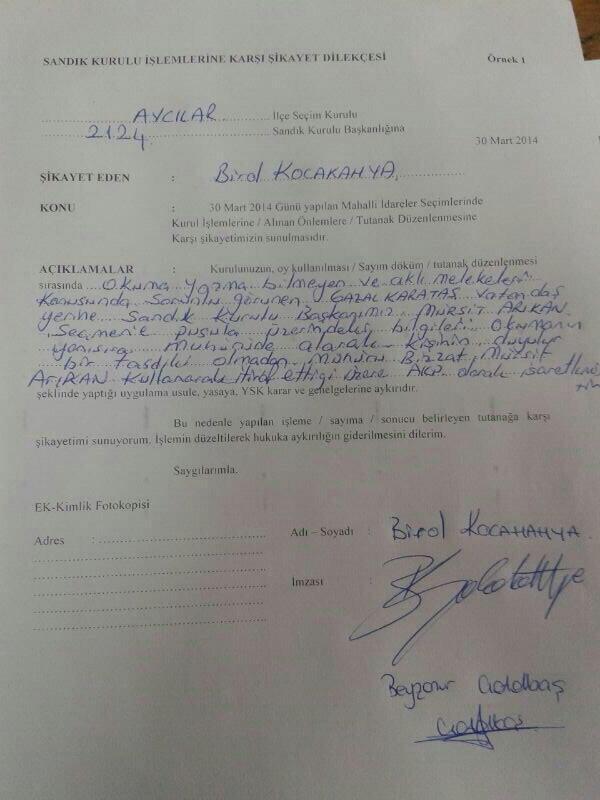 SANDIK KURULU İŞLEMLERİNE KARŞI ŞİKAYET DİLEKÇESİ Örnek 1
AVCILAR İlçe Seçim Kurulu
2124 Sandık Kurulu Başkanlığına
30 Mart 2014
ŞİKAYET EDEN : Birol KOCAKAHYA
KONU : 30 Mart 2014 Günü yapılan Mahalli İdareler Seçimlerinde
Kurul İşlemlerine / Alınan Önlemlere / Tutanak Düzenlenmesine
Karşı şikayetimizin sunulmasıdır.
AÇIKLAMALAR : Kurulunuzun, oy kullanılması / Sayım döküm / tutanak düzenlenmesi
sırasında Okuma yazma bilmeyen ve akli melekeleri
konusunda sorunlu görünen GAZAL KARATAŞ vatandaş
yerine Sandık Kurulu Başkanımız MÜRŞİT ARIKAN
Seçmene pusula üzerindeki bilgileri okumanın
yanısıra mührüde alarak kişinin duyulur
bir tasdiki olmadan mührü Bizzat Mürşit
ARIKAN kullanarak itiraf ettiği üzere AKP olarak işaretlemiştir
şeklinde yaptığı uygulama usule, yasaya, YSK karar ve genelgelerine aykırıdır.
Bu nedenle yapılan işleme / sayıma / sonucu belirleyen tutanağa karşı
şikayetimi sunuyorum. İşlemin düzeltilerek hukuka aykırılığın giderilmesini dilerim.
Saygılarımla.
EK-Kimlik Fotokopisi
Adres :
Adı – Soyadı : Birol KOCAKAHYA
İmzası :
Beyzanur